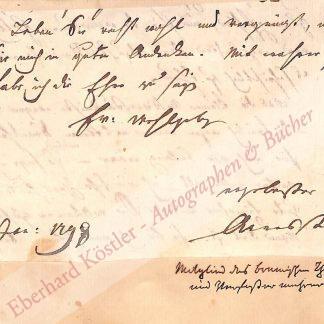 Leben Sie recht wohl und vergnügt,
Sie mich in gutem Andenken. Mit wahrer
habe ich die Ehre zu sein
Ew. Wohlgeb
ergebenster
Jan: 1798
Mitglied des
und Verfasser mehrer
Eberhard Köstler - Autographen & Bücher